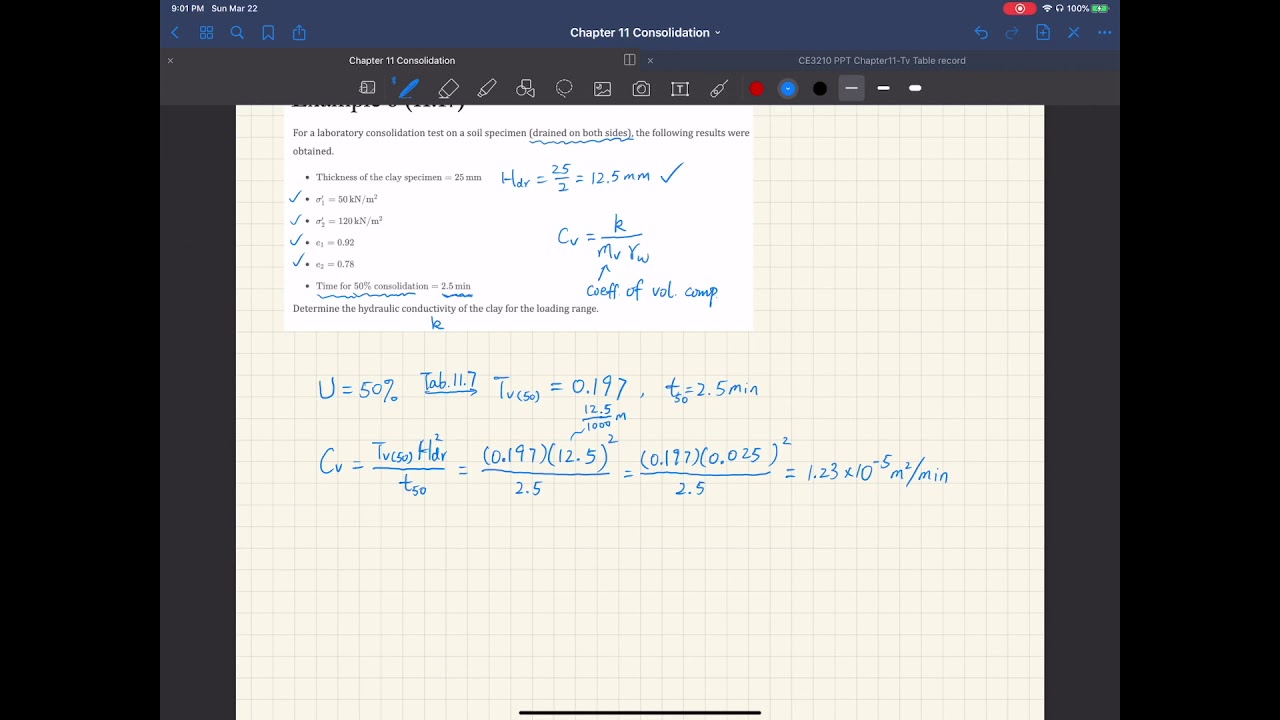 9:01 PM Sun Mar 22
100%
Chapter 11 Consolidation
Chapter 11 Consolidation
CE3210 PPT Chapter11-Tv Table record
For a laboratory consolidation test on a soil specimen (drained on both sides), the following results were
obtained.
• Thickness of the clay specimen = 25 mm
H_dr = 25/2 = 12.5 mm ✓
✓ • σ′₁ = 50 kN/m²
✓ • σ′₂ = 120 kN/m²
C_v = k / (m_v γ_w)
✓ • e₁ = 0.92
✓ • e₂ = 0.78
• Time for 50% consolidation = 2.5 min
coeff. of vol. comp.
Determine the hydraulic conductivity of the clay for the loading range.
k
U = 50% Tab. 11.7 → T_v(50) = 0.197 , t_50 = 2.5 min
12.5/1000 m
C_v = T_v(50) H_dr² / t_50 = (0.197)(12.5)² / 2.5 = (0.197)(0.025)² / 2.5 = 1.23 × 10⁻⁵ m²/min